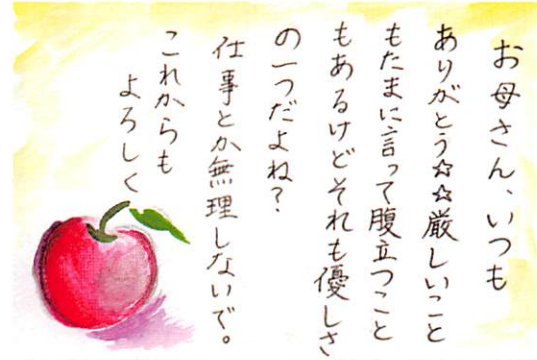 お母さん、いつも
ありがとう☆☆厳しいこと
もたまに言って腹立つこと
もあるけどそれも優しさ
の一つだよね?
仕事とか無理しないで。
これからも
よろしく